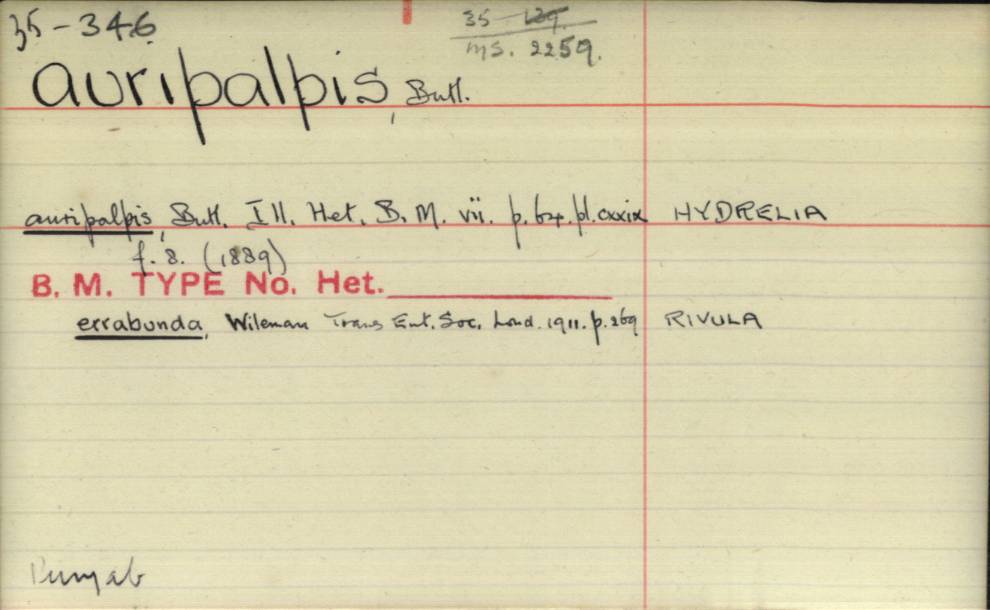 35-346
35 129.
ms. 2259.
auripalpis, Butl.
auripalpis, Butl. Ill. Het. B. M. vii. p. 64. pl. cxxix HYDRELIA
f. 8. (1889)
B. M. TYPE No. Het.
errabunda, Wileman Trans Ent. Soc. Lond. 1911. p. 269 RIVULA
Punjab